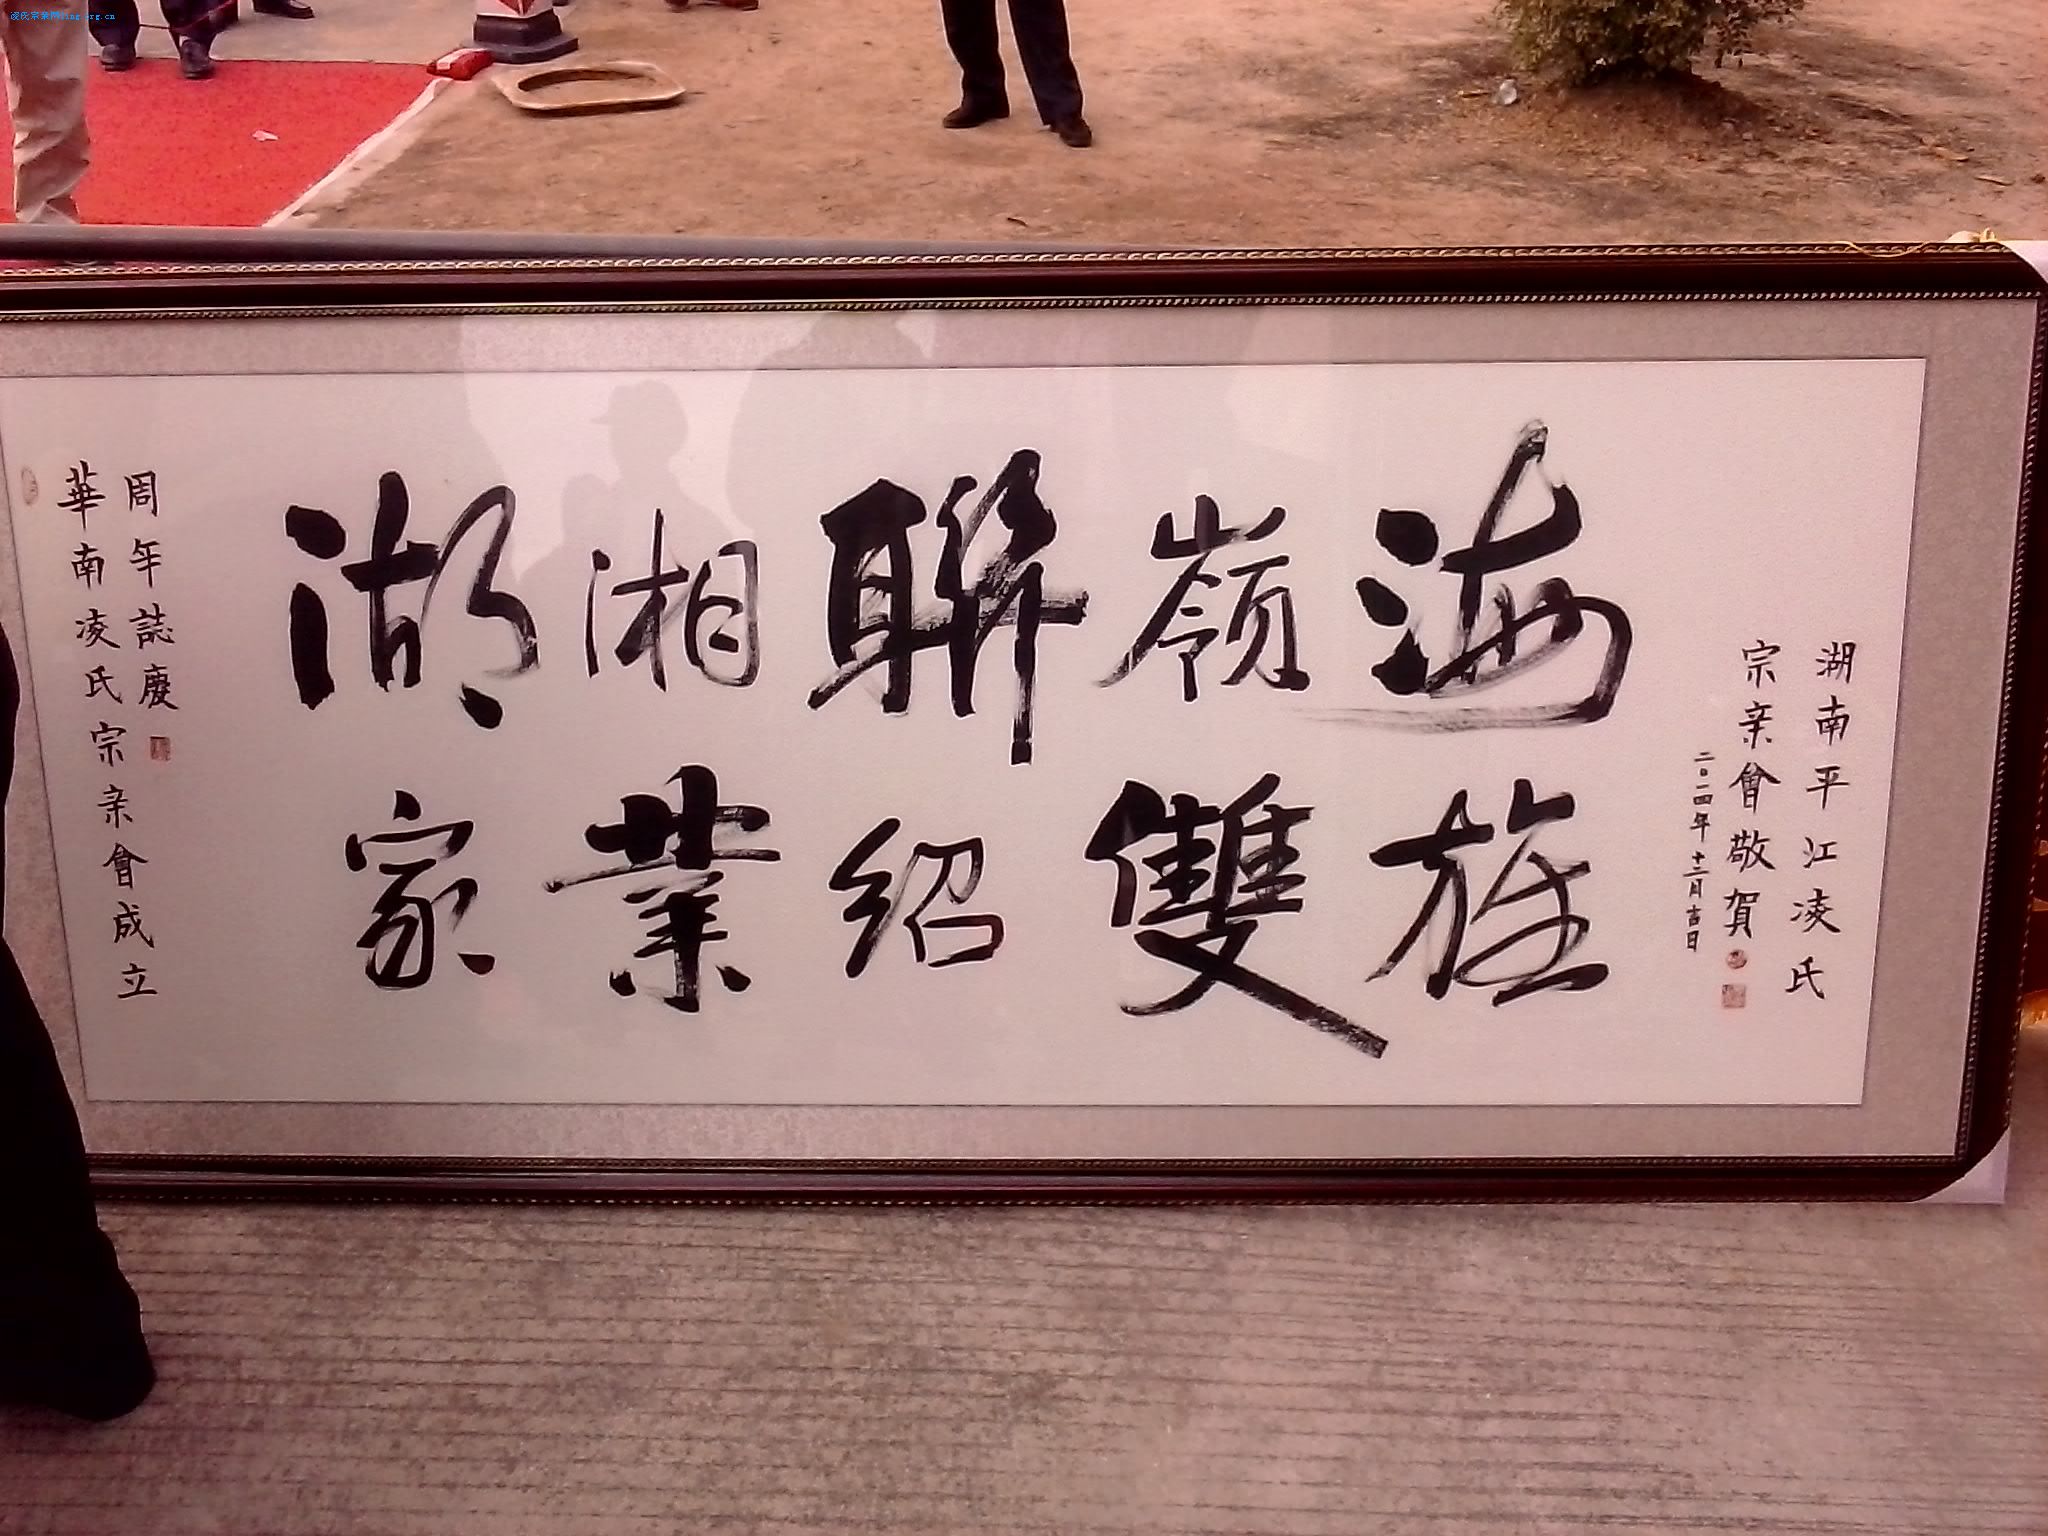 凌氏宗亲网ling.org.cn
華南凌氏宗亲會成立
周年誌慶
海嶺聯湘湖
旌雙紹業家
湖南平江凌氏
宗亲會敬賀
二〇一四年十二月吉日